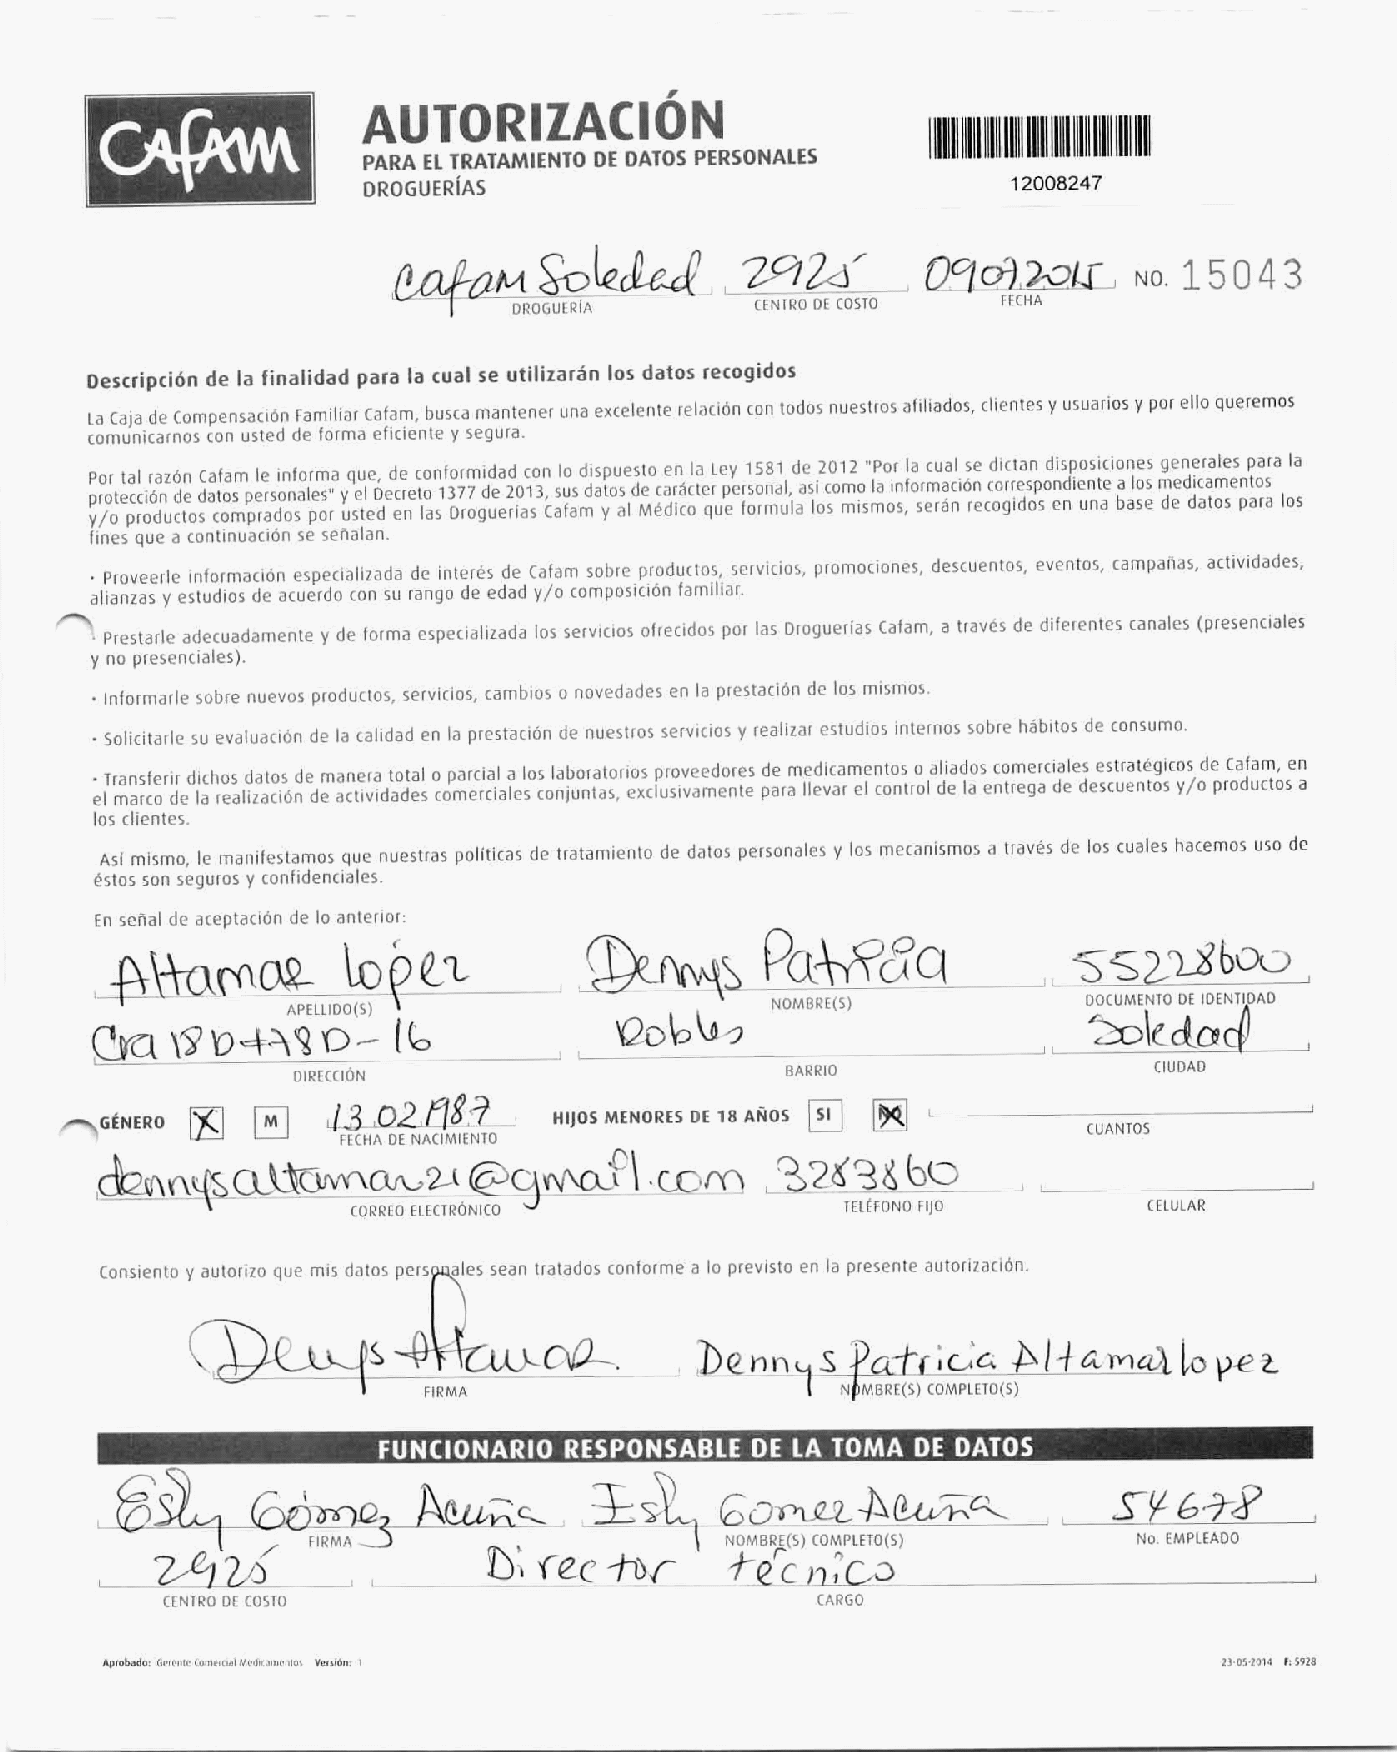 CAFAM
AUTORIZACIÓN
PARA EL TRATAMIENTO DE DATOS PERSONALES
DROGUERÍAS
12008247
Cafam Soledad 2925 09072015 NO. 15043
DROGUERÍA CENTRO DE COSTO FECHA
Descripción de la finalidad para la cual se utilizarán los datos recogidos
La Caja de Compensación Familiar Cafam, busca mantener una excelente relación con todos nuestros afiliados, clientes y usuarios y por ello queremos
comunicarnos con usted de forma eficiente y segura.
Por tal razón Cafam le informa que, de conformidad con lo dispuesto en la Ley 1581 de 2012 "Por la cual se dictan disposiciones generales para la
protección de datos personales" y el Decreto 1377 de 2013, sus datos de carácter personal, así como la información correspondiente a los medicamentos
y/o productos comprados por usted en las Droguerías Cafam y al Médico que formula los mismos, serán recogidos en una base de datos para los
fines que a continuación se señalan.
· Proveerle información especializada de interés de Cafam sobre productos, servicios, promociones, descuentos, eventos, campañas, actividades,
alianzas y estudios de acuerdo con su rango de edad y/o composición familiar.
· Prestarle adecuadamente y de forma especializada los servicios ofrecidos por las Droguerías Cafam, a través de diferentes canales (presenciales
y no presenciales).
· Informarle sobre nuevos productos, servicios, cambios o novedades en la prestación de los mismos.
· Solicitarle su evaluación de la calidad en la prestación de nuestros servicios y realizar estudios internos sobre hábitos de consumo.
· Transferir dichos datos de manera total o parcial a los laboratorios proveedores de medicamentos o aliados comerciales estratégicos de Cafam, en
el marco de la realización de actividades comerciales conjuntas, exclusivamente para llevar el control de la entrega de descuentos y/o productos a
los clientes.
Así mismo, le manifestamos que nuestras políticas de tratamiento de datos personales y los mecanismos a través de los cuales hacemos uso de
éstos son seguros y confidenciales.
En señal de aceptación de lo anterior:
Altamar Lopez Dennys Patricia 55228600
APELLIDO(S) NOMBRE(S) DOCUMENTO DE IDENTIDAD
Cra 18D #18D-16 Robles Soledad
DIRECCIÓN BARRIO CIUDAD
GÉNERO X M 13 02 1987 HIJOS MENORES DE 18 AÑOS SI NO
FECHA DE NACIMIENTO CUANTOS
dennysaltamar21@gmail.com 3283860
CORREO ELECTRÓNICO TELÉFONO FIJO CELULAR
Consiento y autorizo que mis datos personales sean tratados conforme a lo previsto en la presente autorización.
Dennys Altamar Dennys Patricia Altamar lopez
FIRMA NOMBRE(S) COMPLETO(S)
FUNCIONARIO RESPONSABLE DE LA TOMA DE DATOS
Esly Gómez Acuña Esly Gomez Acuña 54678
FIRMA NOMBRE(S) COMPLETO(S) No. EMPLEADO
2925 Director técnico
CENTRO DE COSTO CARGO
Aprobado: Gerente Comercial Medicamentos Versión: 1 23-05-2014 F: 5928